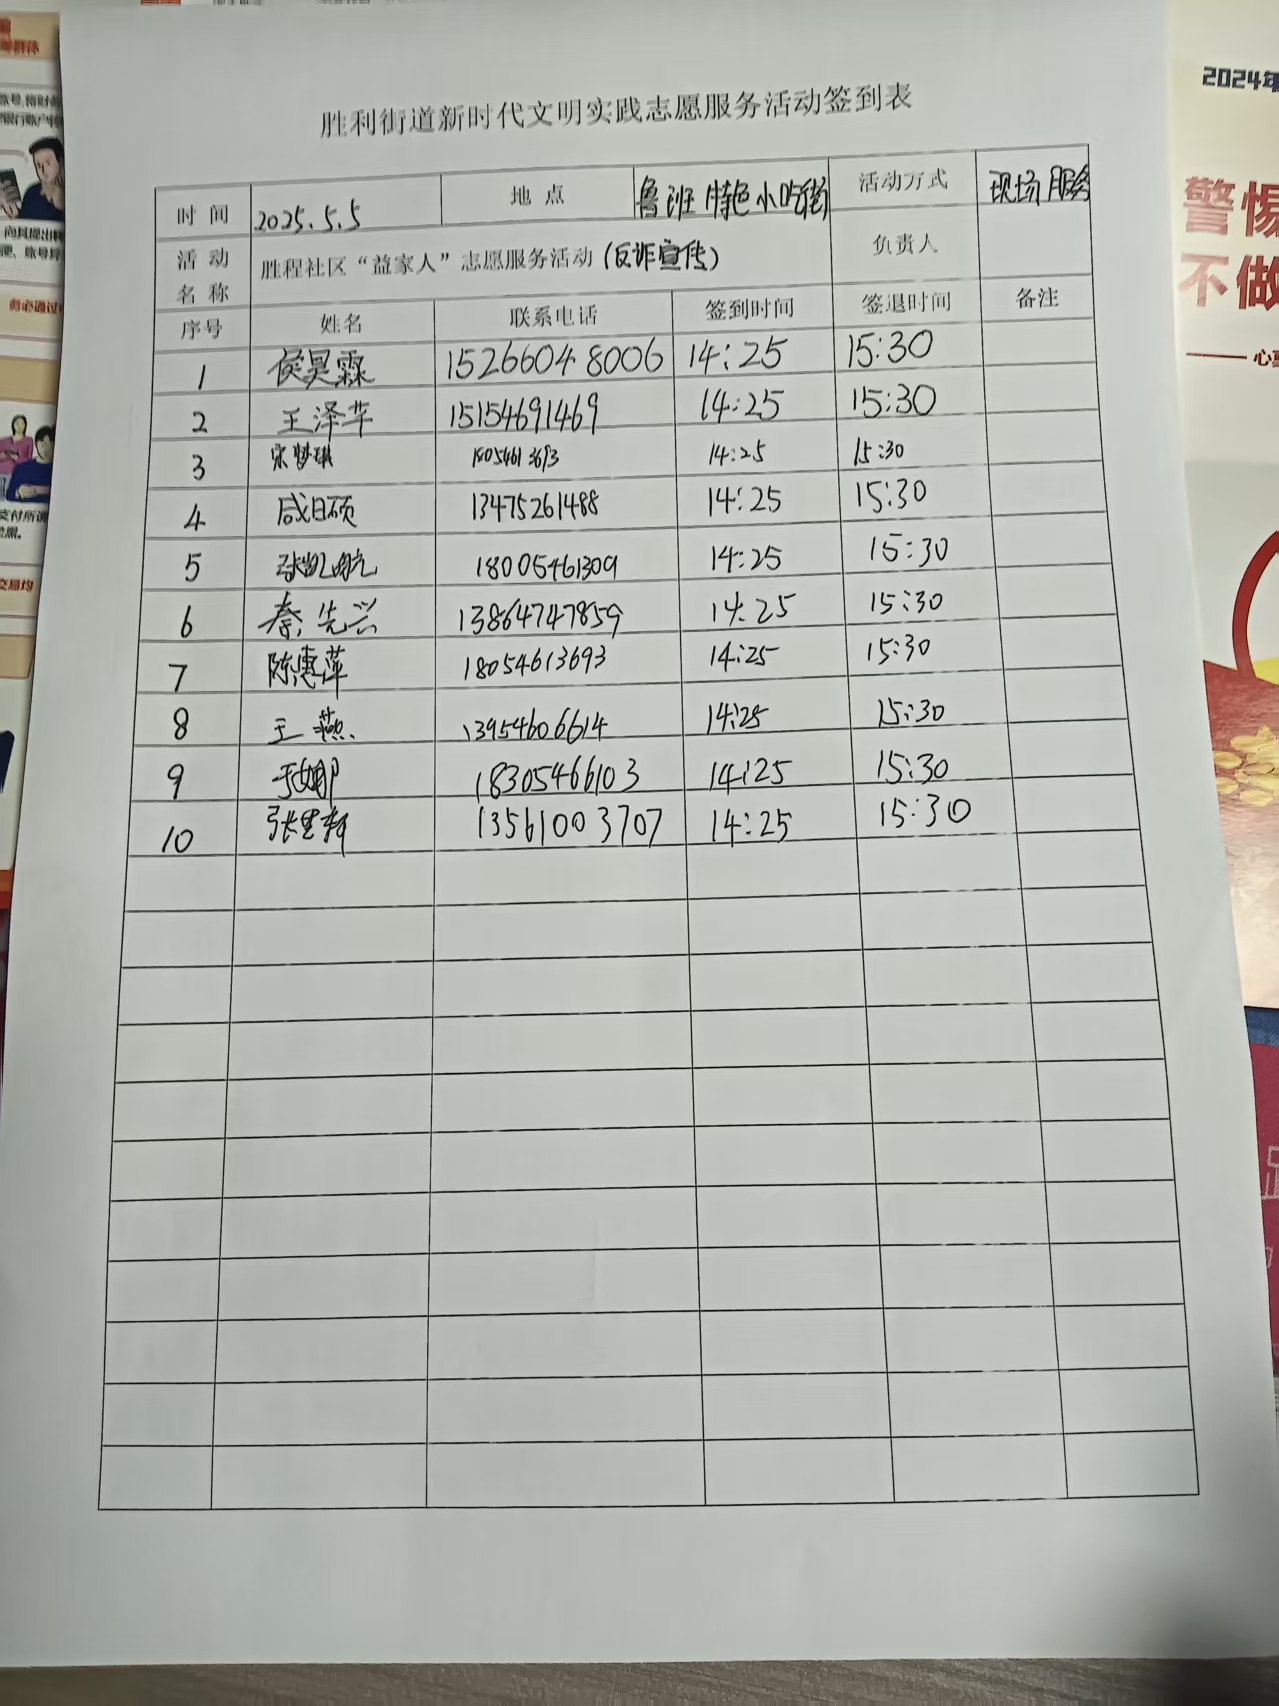 2024年
警惕
不做
—— 心
胜利街道新时代文明实践志愿服务活动签到表
时 间 2025.5.5 地 点 鲁班特色小吃街 活动方式 现场服务
活动名称 胜程社区“益家人”志愿服务活动(反诈宣传) 负责人
序号 姓名 联系电话 签到时间 签退时间 备注
1 侯昊霖 15266048006 14:25 15:30
2 王泽芊 15154691469 14:25 15:30
3 宋梦琪 14:25 15:30
4 咸日硕 13475261488 14:25 15:30
5 张凯航 18005461309 14:25 15:30
6 秦先兴 13864747859 14:25 15:30
7 陈惠萍 18054613693 14:25 15:30
8 王燕 13954606614 14:25 15:30
9 于娜 18305466103 14:25 15:30
10 张 13561003707 14:25 15:30